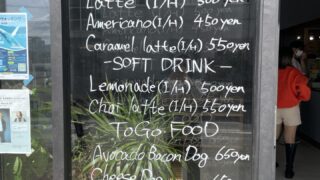 Latte (I/H) 500yen
Americano (I/H) 450yen
Caramel latte (I/H) 550yen
-SOFT DRINK-
Lemonade (I/H) 500yen
Chai latte (I/H) 550yen
ToGo FOOD
Avocado Bacon Dog 650yen
Cheese Dog